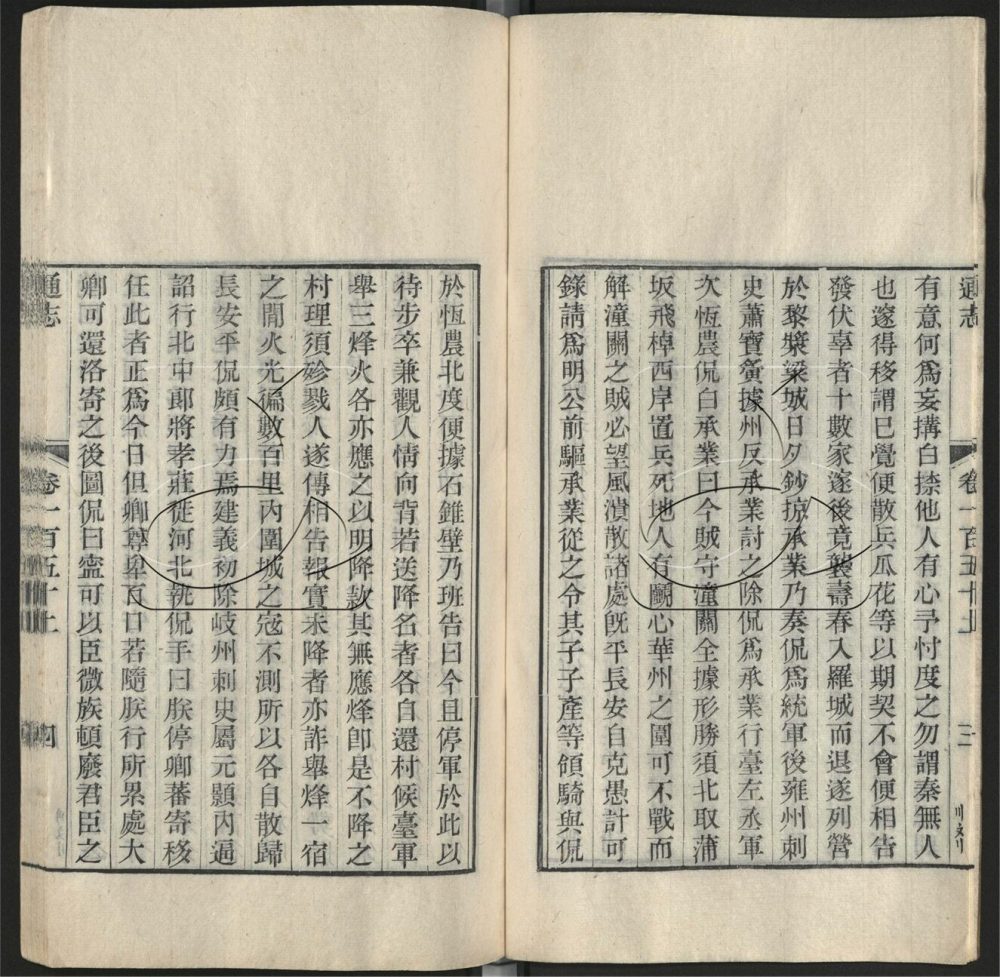 通志
卷一百五十上
三
有意何爲妄搆白捺他人有心予忖度之勿謂秦無人
也邃得移謂已覺便散兵瓜花等以期契不會便相告
發伏辜者十數家邃後竟襲壽春入羅城而退遂列營
於黎漿梁城日夕鈔掠承業乃奏侃爲統軍後雍州刺
史蕭寶夤據州反承業討之除侃爲承業行臺左丞軍
次恆農侃白承業曰今賊守潼關全據形勝須北取蒲
坂飛棹西岸置兵死地人有鬭心華州之圍可不戰而
解潼關之賊必望風潰散諸處既平長安自克愚計可
錄請爲明公前驅承業從之令其子子產等領騎與侃
於恆農北度便據石錐壁乃班告曰今且停軍於此以
待步卒兼觀人情向背若送降名者各自還村候臺軍
舉三烽火各亦應之以明降款其無應烽卽是不降之
村理須殄戮人遂傳相告報實未降者亦詐舉烽一宿
之閒火光徧數百里內圍城之寇不測所以各自散歸
長安平侃頗有力焉建義初除岐州刺史屬元顥內逼
詔行北中郎將孝莊徙河北執侃手曰朕停卿蕃寄移
任此者正爲今日但卿尊卑百口若隨朕行所累處大
卿可還洛寄之後圖侃曰寍可以臣微族頓廢君臣之
通志
卷一百五十上
四